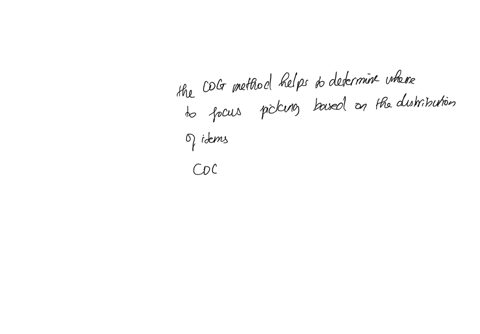 the COG method helps to determine where
to focus picking based on the distribution
of items
COC